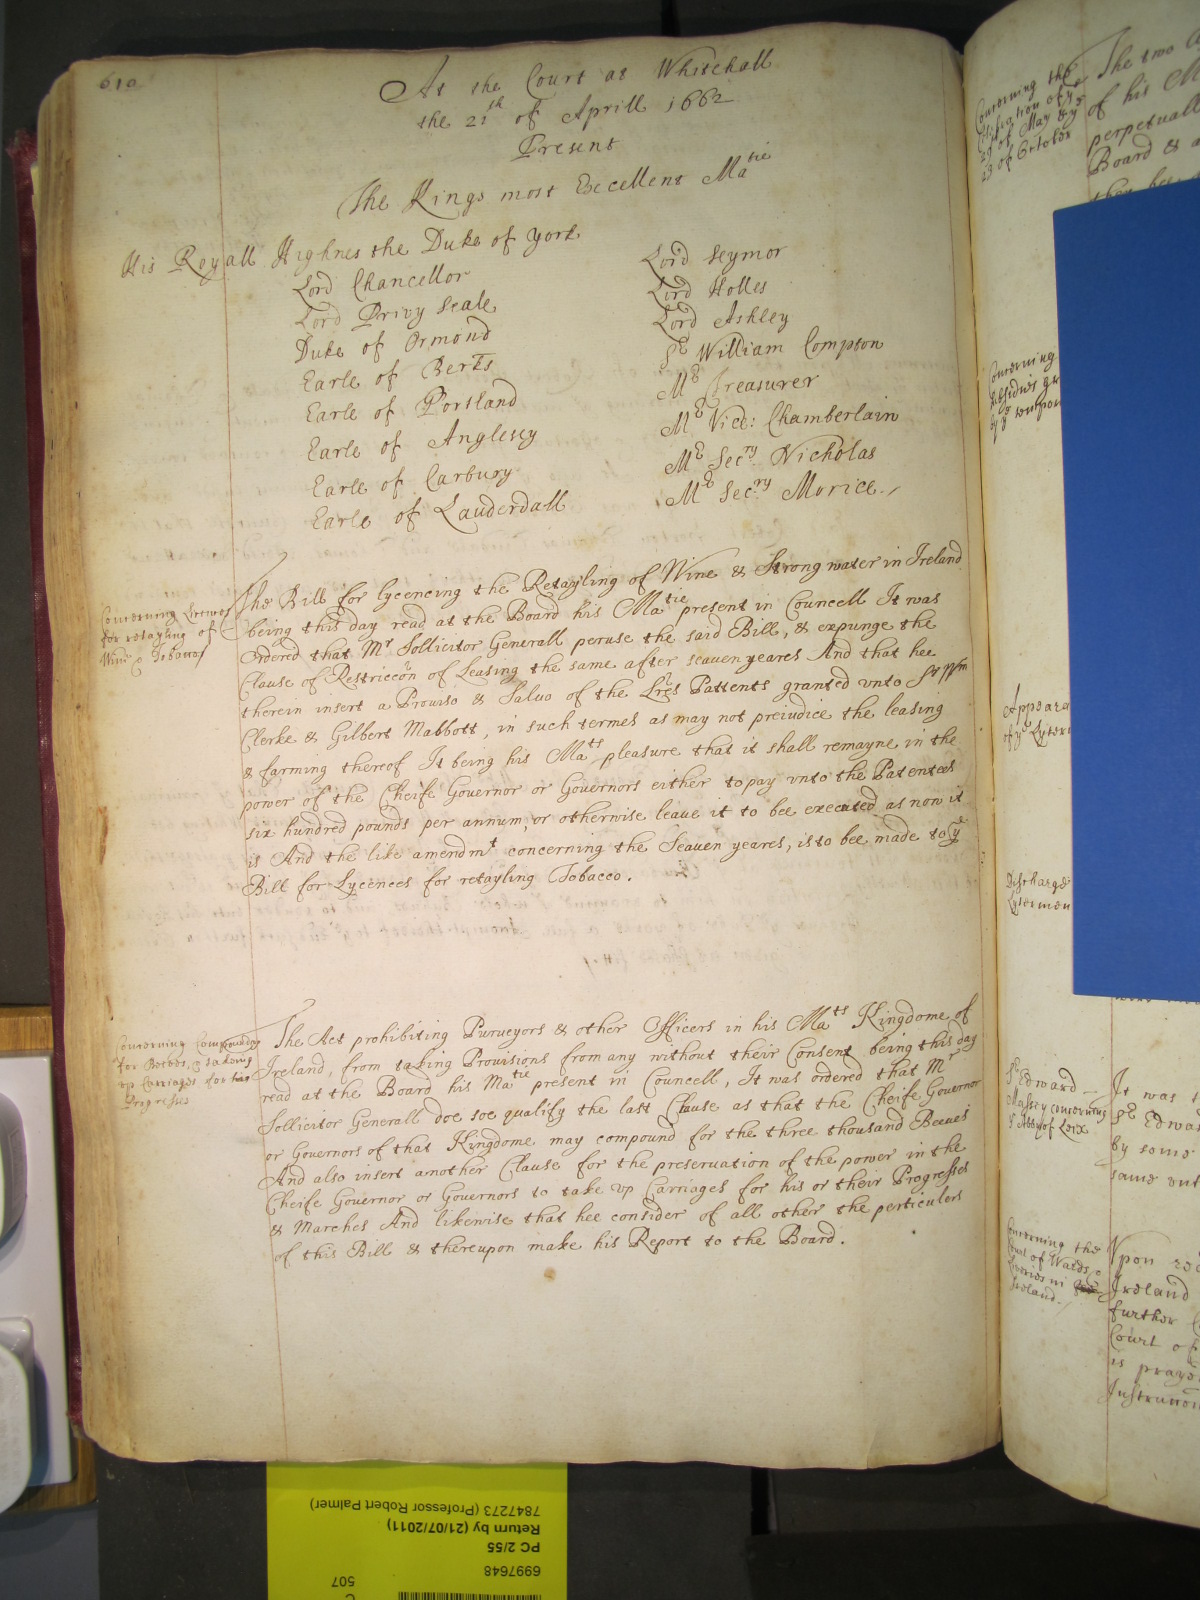 610
At the Court at Whitehall
the 21th of Aprill 1662
Present
The Kings most Excellent Matie
His Royall Highnes the Duke of York
Lord Chancellor
Lord Privy Seale
Duke of Ormond
Earle of Berks
Earle of Portland
Earle of Anglesey
Earle of Carbury
Earle of Lauderdall
Lord Seymor
Lord Holles
Lord Ashley
Sr William Compton
Mr Treasurer
Mr Vice: Chamberlain
Mr Secry Nicholas
Mr Secry Morice./
Concerning Licences
for retayling of
Wine & Tobacco
The Bill for lycencing the Retayling of Wine & Strong water in Ireland
being this day read at the Board his Matie present in Councell It was
Ordered that Mr Sollicitor Generall peruse the said Bill, & expunge the
Clause of Restriccõn of Leasing the same after seauen yeares And that hee
therein insert a Prouiso & Saluo of the Lres Pattents granted vnto Sr Wm
Clerke & Gilbert Mabbott, in such termes as may not preiudice the leasing
& farming thereof It being his Mats pleasure that it shall remayne in the
power of the Cheife Governor or Governors either to pay vnto the Patentees
six hundred pounds per annum, or otherwise leaue it to bee executed as now it
is And the like amendmt concerning the Seauen yeares, is to bee made to ye
Bill for Lycences for retayling Tobacco.
Concerning Compounding
for Beeves, & takeing
up Carriages for his
Progresses
The Act prohibiting Purveyors & other Officers in his Mats Kingdome of
Ireland, from taking Provisions from any without their Consent being this day
read at the Board his Matie present in Councell, It was ordered that Mr
Sollicitor Generall doe soe qualify the last Clause as that the Cheife Governor
or Governors of that Kingdome may compound for the three thousand Beeues
And also insert another Clause for the preservation of the power in the
Cheife Governor or Governors to take vp Carriages for his or their Progresses
& Marches And likewise that hee consider of all other the perticulers
of this Bill & thereupon make his Report to the Board.
Concerning the
of ye
29 of May & ye
23 of October
The two
of his
perpetuall
Board & a
Concerning
by ye
Appeara
of ye
Discharge
Sr Edward
Massey concerning
ye Abby of Leix
It was
Sr Edwa
by some
same
Concerning the
Court of Wards &
Liveries in
Ireland./
Vpon
Ireland
further
Court of
is
6997648
PC 2/55
Return by (21/07/2011)
7847273 (Professor Robert Palmer)
507